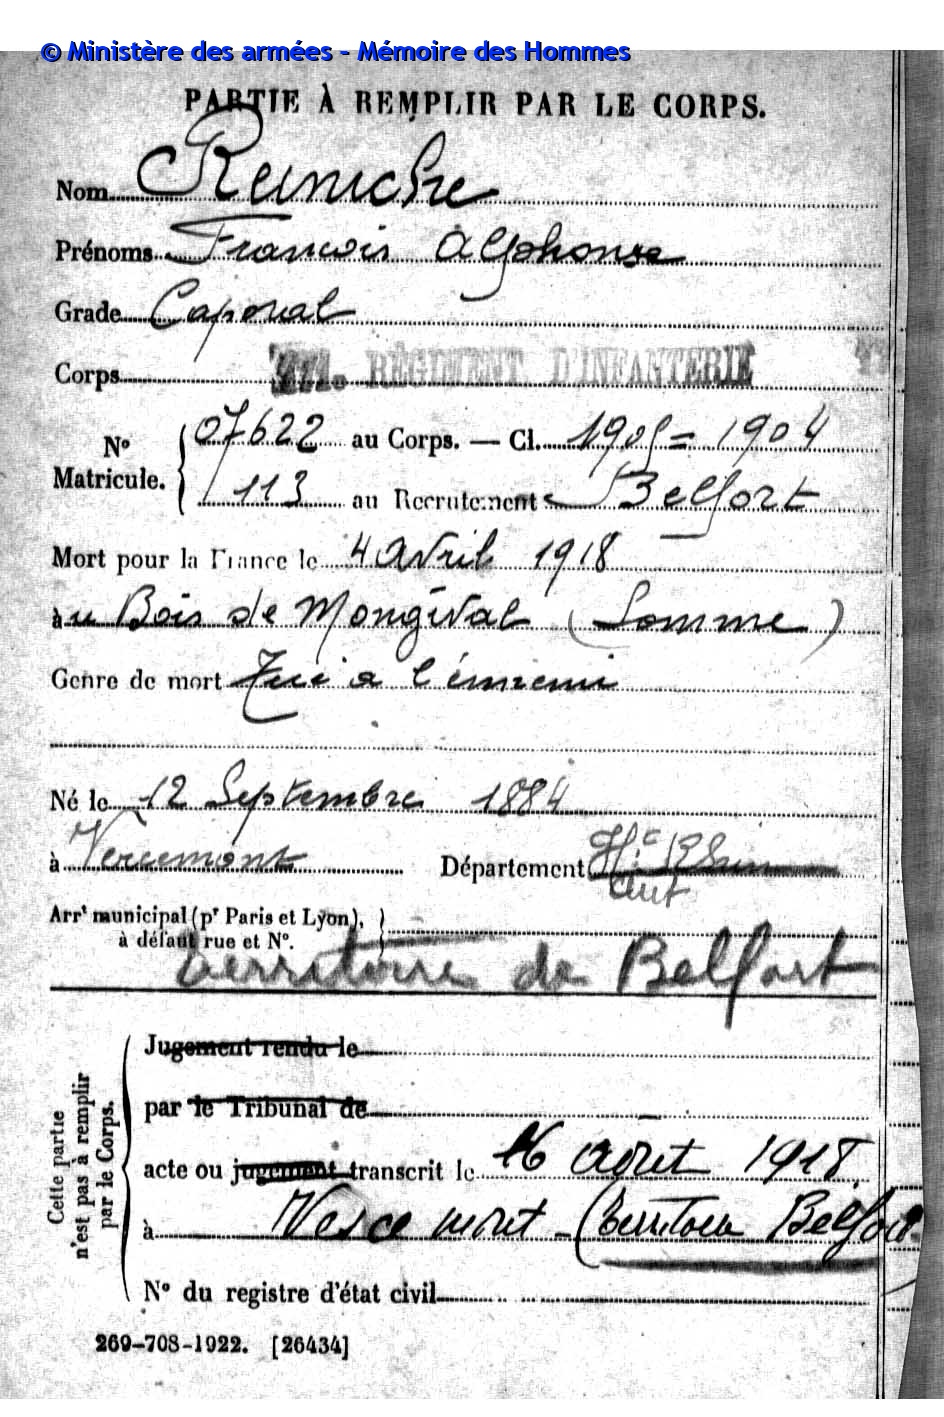 © Ministère des armées - Mémoire des Hommes
PARTIE À REMPLIR PAR LE CORPS.
Nom Reiniche
Prénoms François Alphonse
Grade Caporal
Corps RÉGIMENT D'INFANTERIE
N° Matricule. 07622 au Corps. — Cl. 1905 = 1904
113 au Recrutement Belfort
Mort pour la France le 4 Avril 1918
à u Bois de Mongival (Somme)
Genre de mort Tué à l'énnemi
Né le 12 Septembre 1884
à Département Hte Rhin
Arrt municipal (pr Paris et Lyon),
à défaut rue et N°.
Territoire de Belfort
Cette partie n'est pas à remplir par le Corps.
Jugement rendu le
par le Tribunal de
acte ou jugement transcrit le 16 août 1918
à Vescemont - (Territoire Belfort
N° du registre d'état civil
269-708-1922. [26434]